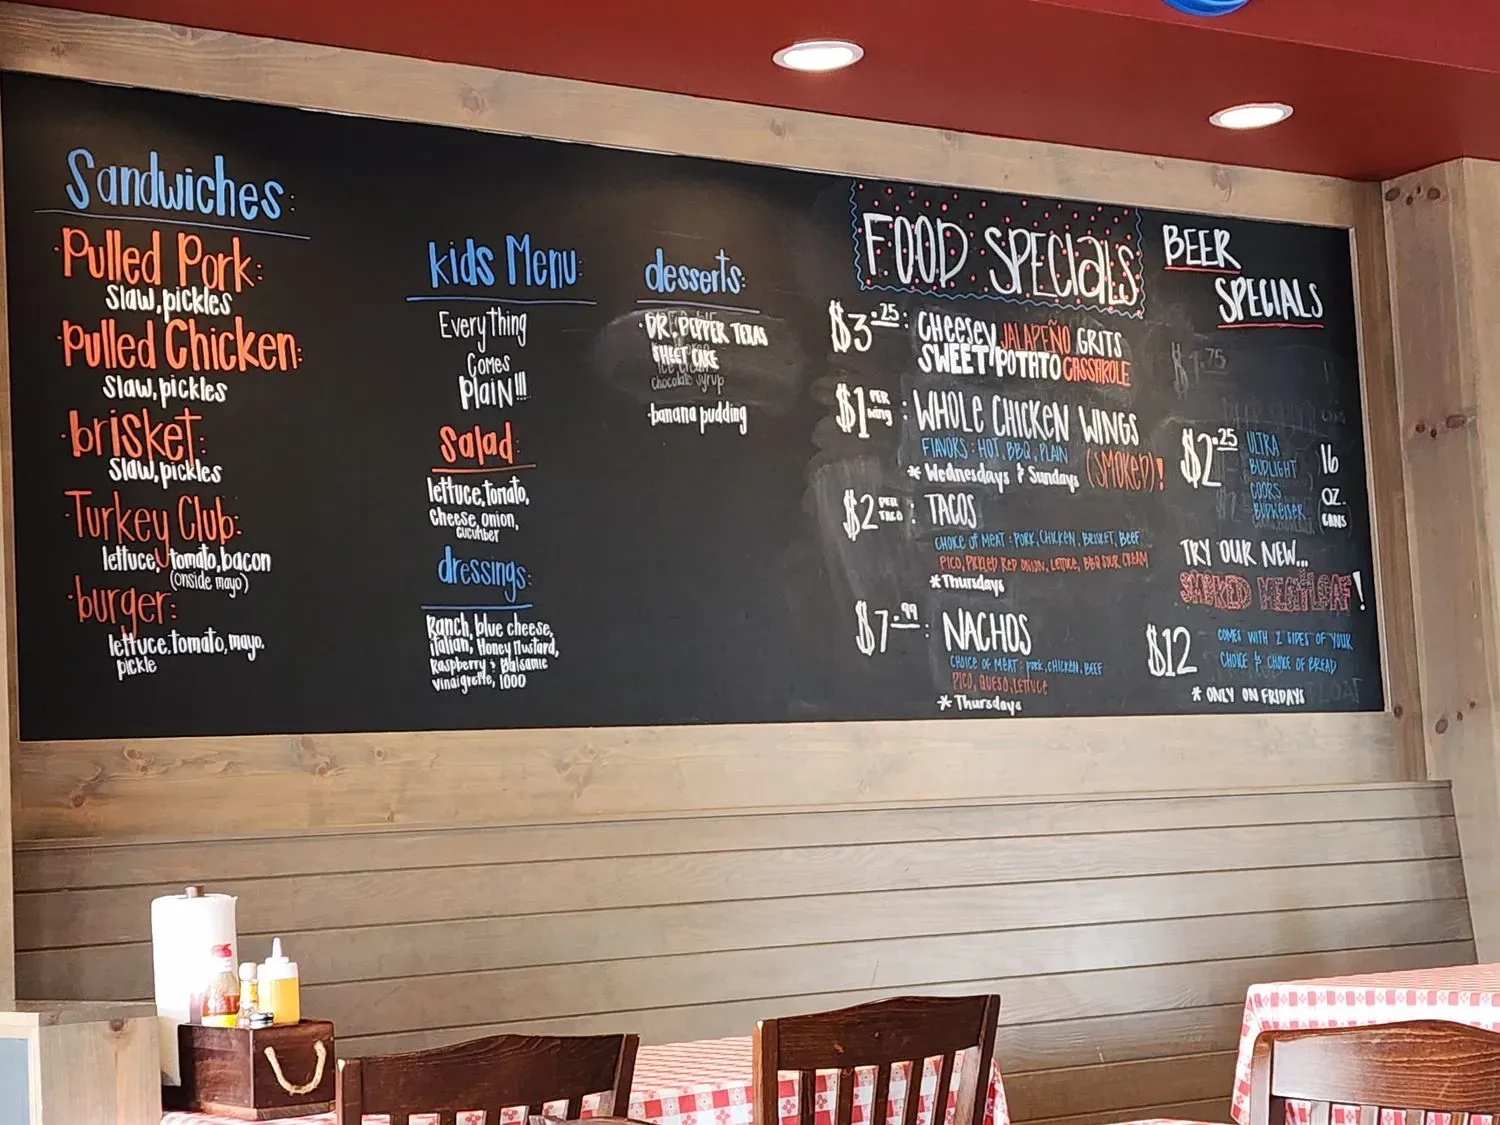 Sandwiches:
·Pulled Pork:
Slaw, pickles
·Pulled Chicken:
Slaw, pickles
·brisket:
Slaw, pickles
·Turkey Club:
lettuce, tomato, bacon
(onside mayo)
·burger:
lettuce, tomato, mayo,
pickle
kids Menu:
Everything
Comes
PlaiN!!!
Salad:
lettuce, tomato,
Cheese, onion,
cucumber
dressings:
Ranch, blue cheese,
italian, Honey Mustard,
Raspberry & Balsamic
Vinaigrette, 1000
desserts:
·DR. PEPPER TEXAS
SHEET CAKE
chocolate syrup
·banana pudding
FOOD SPECIALS
$3.25: CHEESEY JALAPEÑO GRITS
SWEET POTATO CASSAROLE
$1 PER wing: WHOLE CHICKEN WINGS
FLAVORS: HOT, BBQ, PLAIN (SMOKED)!
* Wednesdays & Sundays
$2 PER TACO: TACOS
CHOICE of MEAT: PORK, CHICKEN, BRISKET, BEEF
PICO, PICKLED RED ONION, LETTUCE, BBQ SOUR CREAM
* Thursdays
$7.99: NACHOS
CHOICE OF MEAT: PORK, CHICKEN, BEEF
PICO, QUESO, LETTUCE
* Thursdays
BEER
SPECIALS
$1.75
$2.25
ULTRA
BUDLIGHT
COORS
BUDWEISER
16
OZ.
CANS
TRY OUR NEW...
SMOKED MEATLOAF!
$12 COMES WITH 2 SIDES OF YOUR
CHOICE & CHOICE OF BREAD
* ONLY ON FRIDAYS